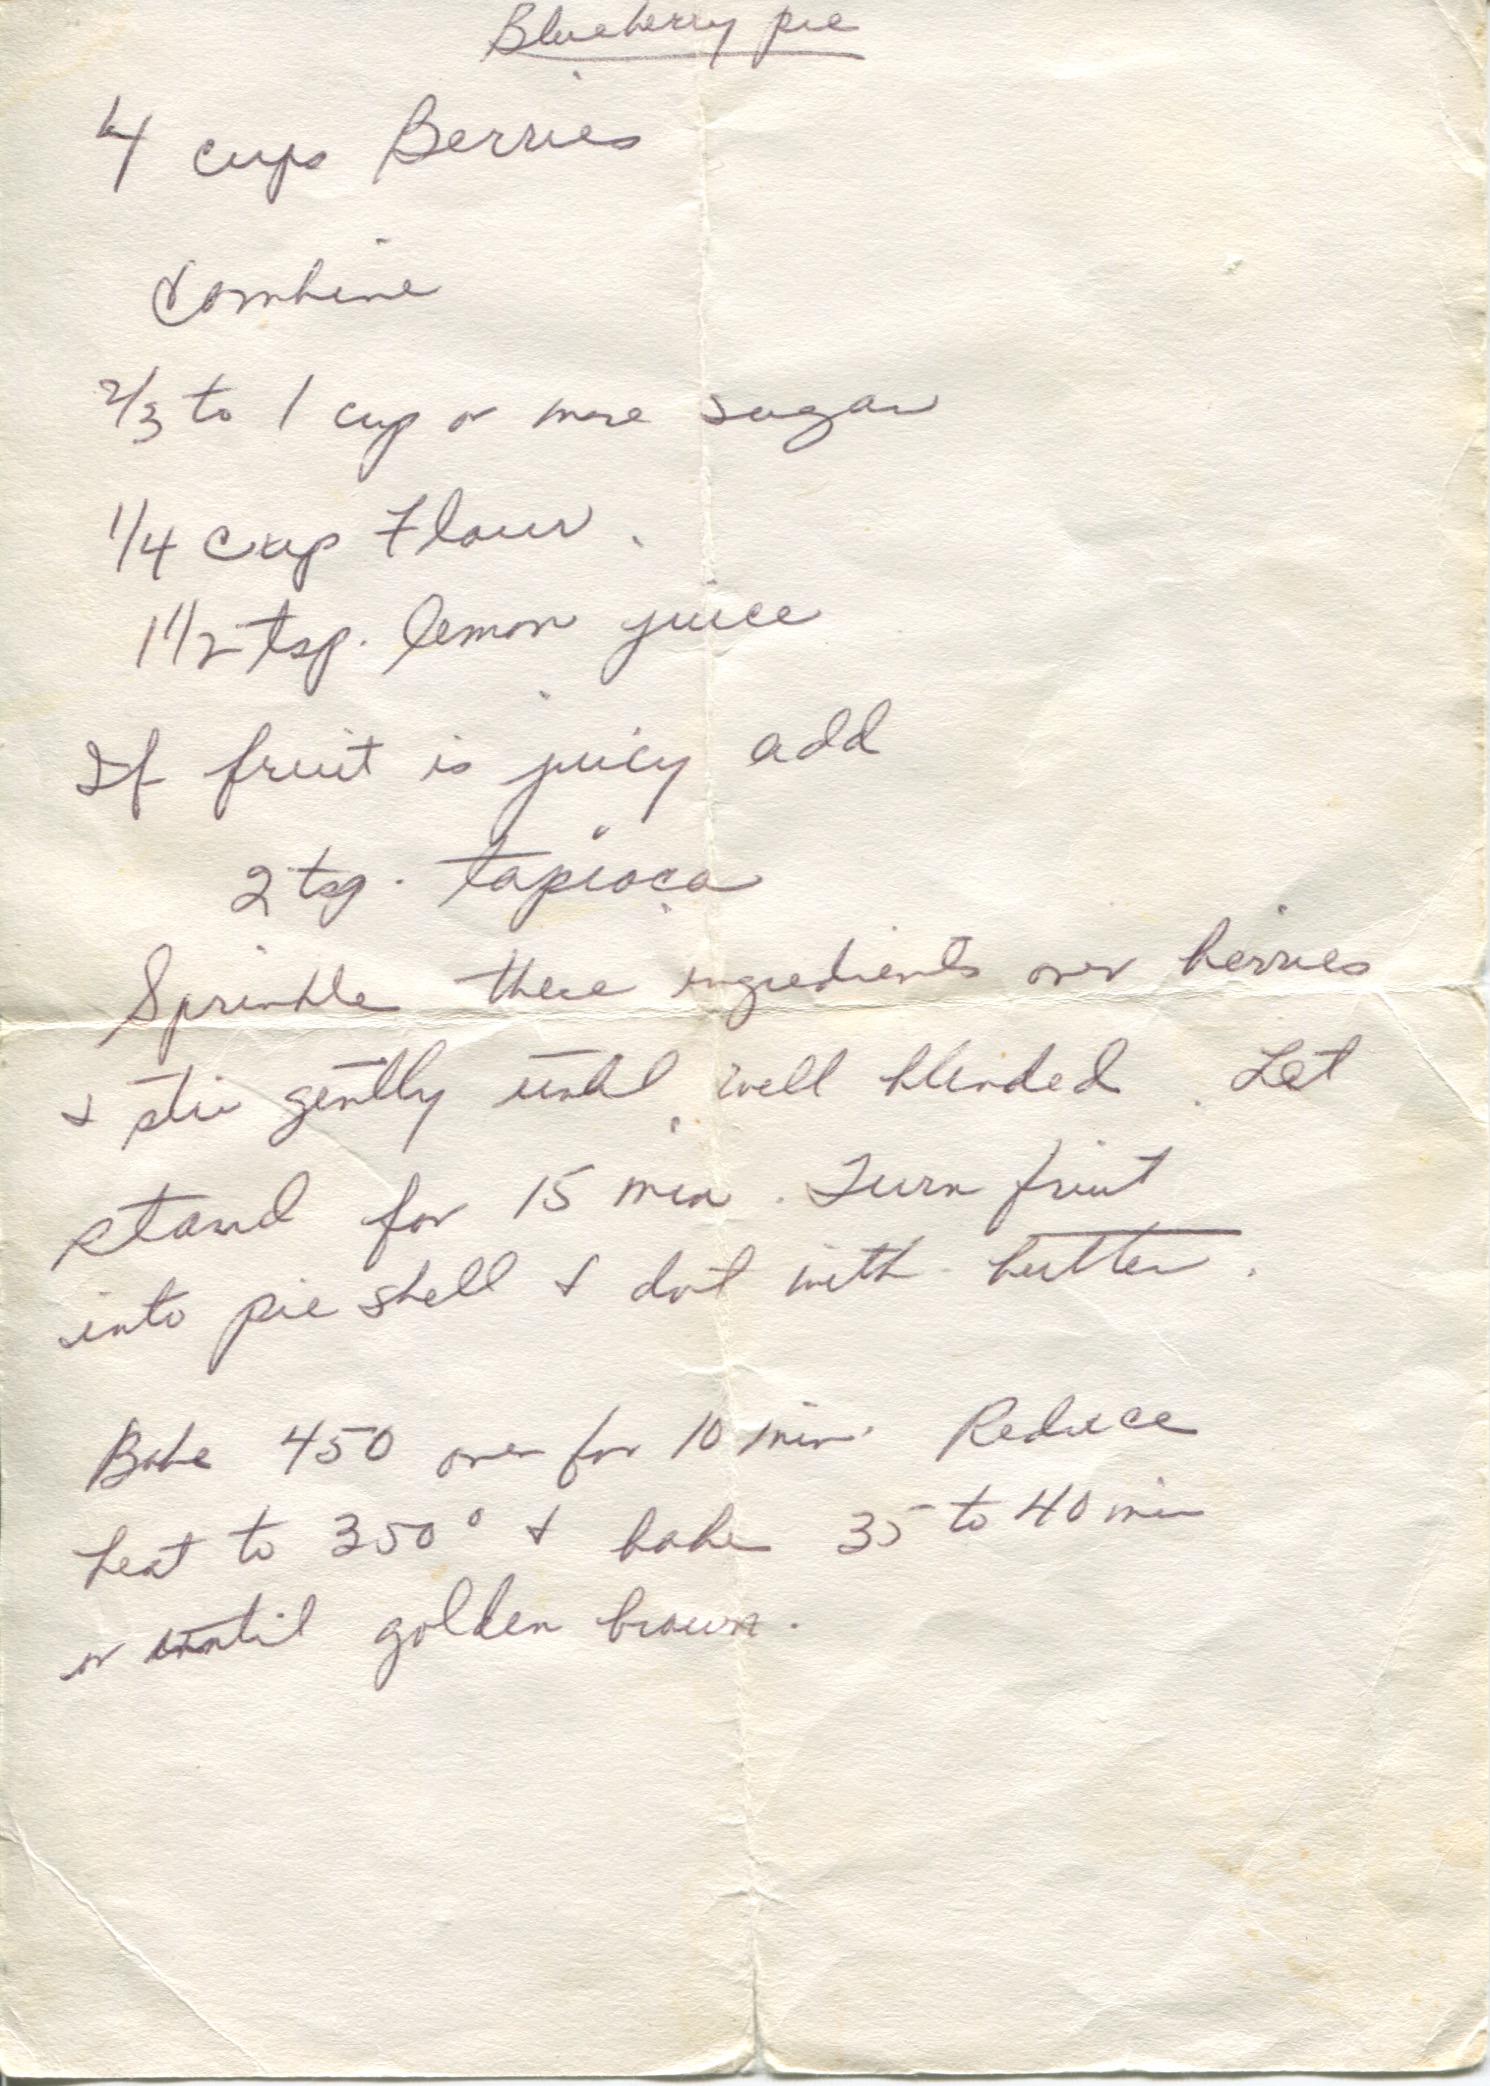 Blueberry pie
4 cups Berries
Combine
2/3 to 1 cup or more sugar
1/4 cup Flour.
1 1/2 tsp. lemon juice
If fruit is juicy add
2 tsp. tapioca
Sprinkle these ingredients over berries
& stir gently until well blended. Let
stand for 15 min. Turn fruit
into pie shell & dot with butter.
Bake 450 oven for 10 min. Reduce
heat to 350° & bake 35 to 40 min
or until golden brown.